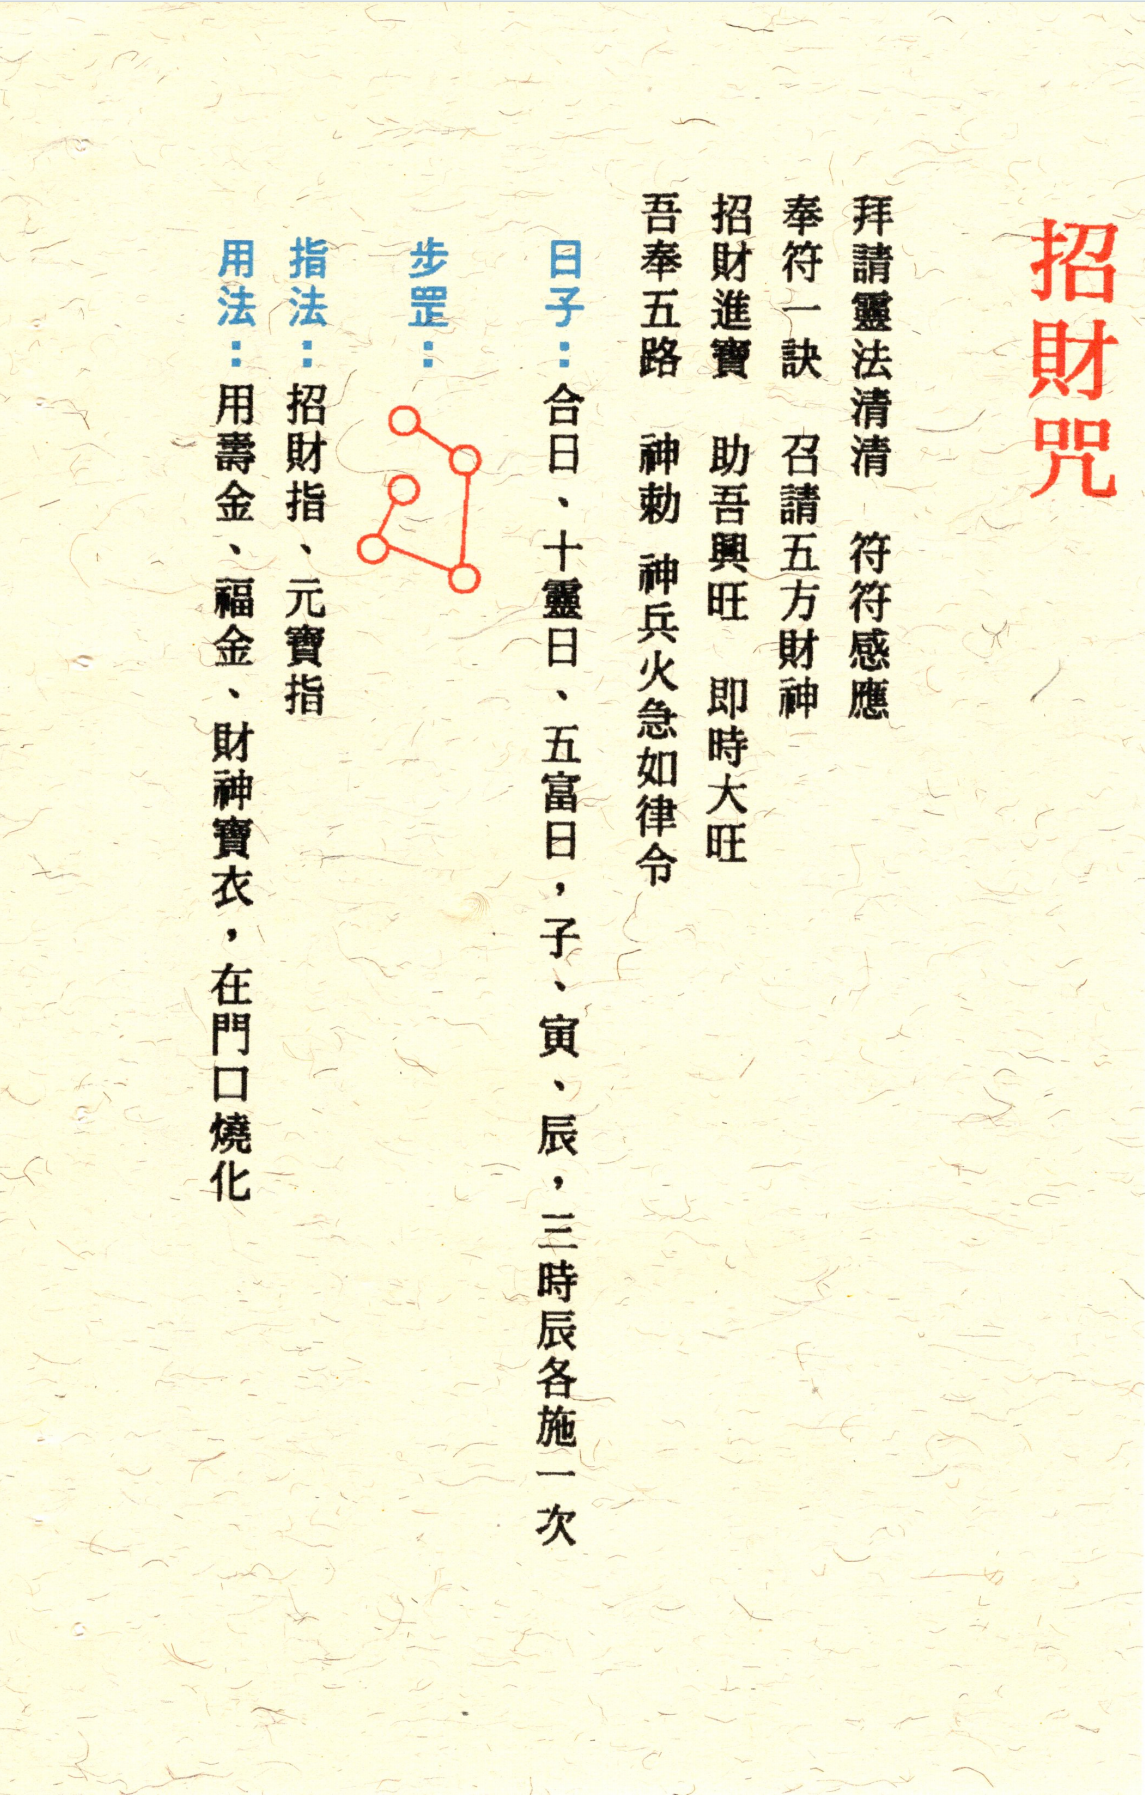 招財咒
拜請靈法清清　符符感應
奉符一訣　召請五方財神
招財進寶　助吾興旺　即時大旺
吾奉五路　神勅　神兵火急如律令
日子：合日、十靈日、五富日，子、寅、辰，三時辰各施一次
步罡：
指法：招財指、元寶指
用法：用壽金、福金、財神寶衣，在門口燒化